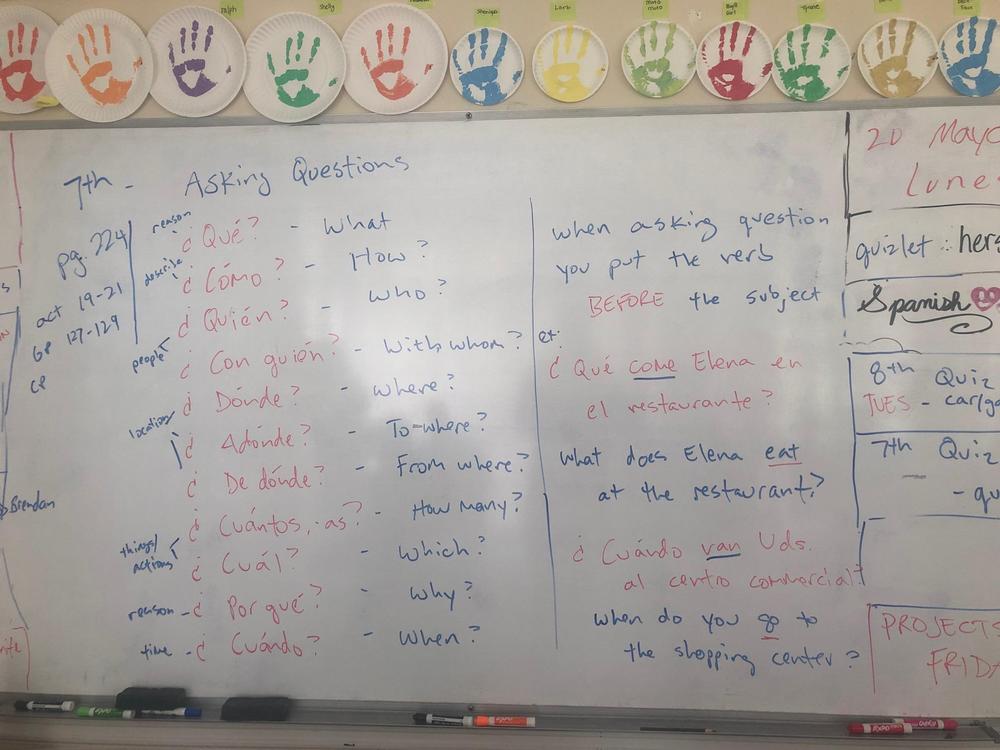 Ralph
Shelly
7th - Asking Questions
pg. 224
act 19-21
127-129
reason
¿Qué? - What
describe
¿Cómo? - How?
¿Quién? - who?
people
¿Con quién? - With whom?
¿Dónde? - where?
location
¿Adónde? - To-where?
¿De dónde? - From where?
¿Cuántos, -as? - How many?
things/
actions
¿Cuál? - which?
reason - ¿Por qué? - why?
time - ¿Cuándo? - when?
when asking question
you put the verb
BEFORE the subject
¿Qué come Elena en
el restaurante?
what does Elena eat
at the restaurant?
¿Cuándo van Uds.
al centro commercial?
when do you go to
the shopping center?
20 Mayo
Lune
quizlet : hers
Spanish
8th Quiz
TUES - car/ga
7th Quiz
- qu
PROJECTS
FRIDA
Brendan